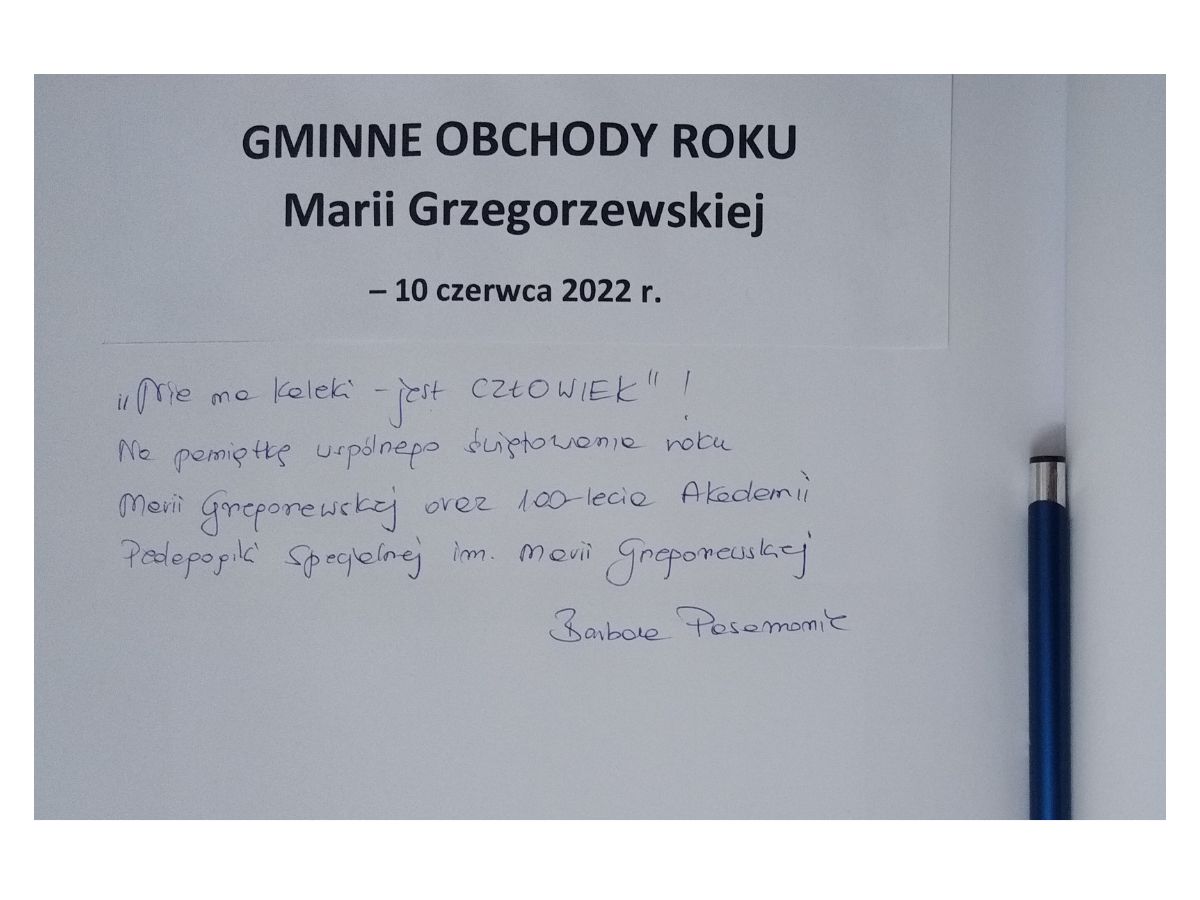 GMINNE OBCHODY ROKU
Marii Grzegorzewskiej
– 10 czerwca 2022 r.
„Nie ma kaleki – jest CZŁOWIEK" !
Na pamiątkę wspólnego świętowania roku
Marii Grzegorzewskiej oraz 100-lecia Akademii
Pedagogiki Specjalnej im. Marii Grzegorzewskiej
Barbara Pasamonik